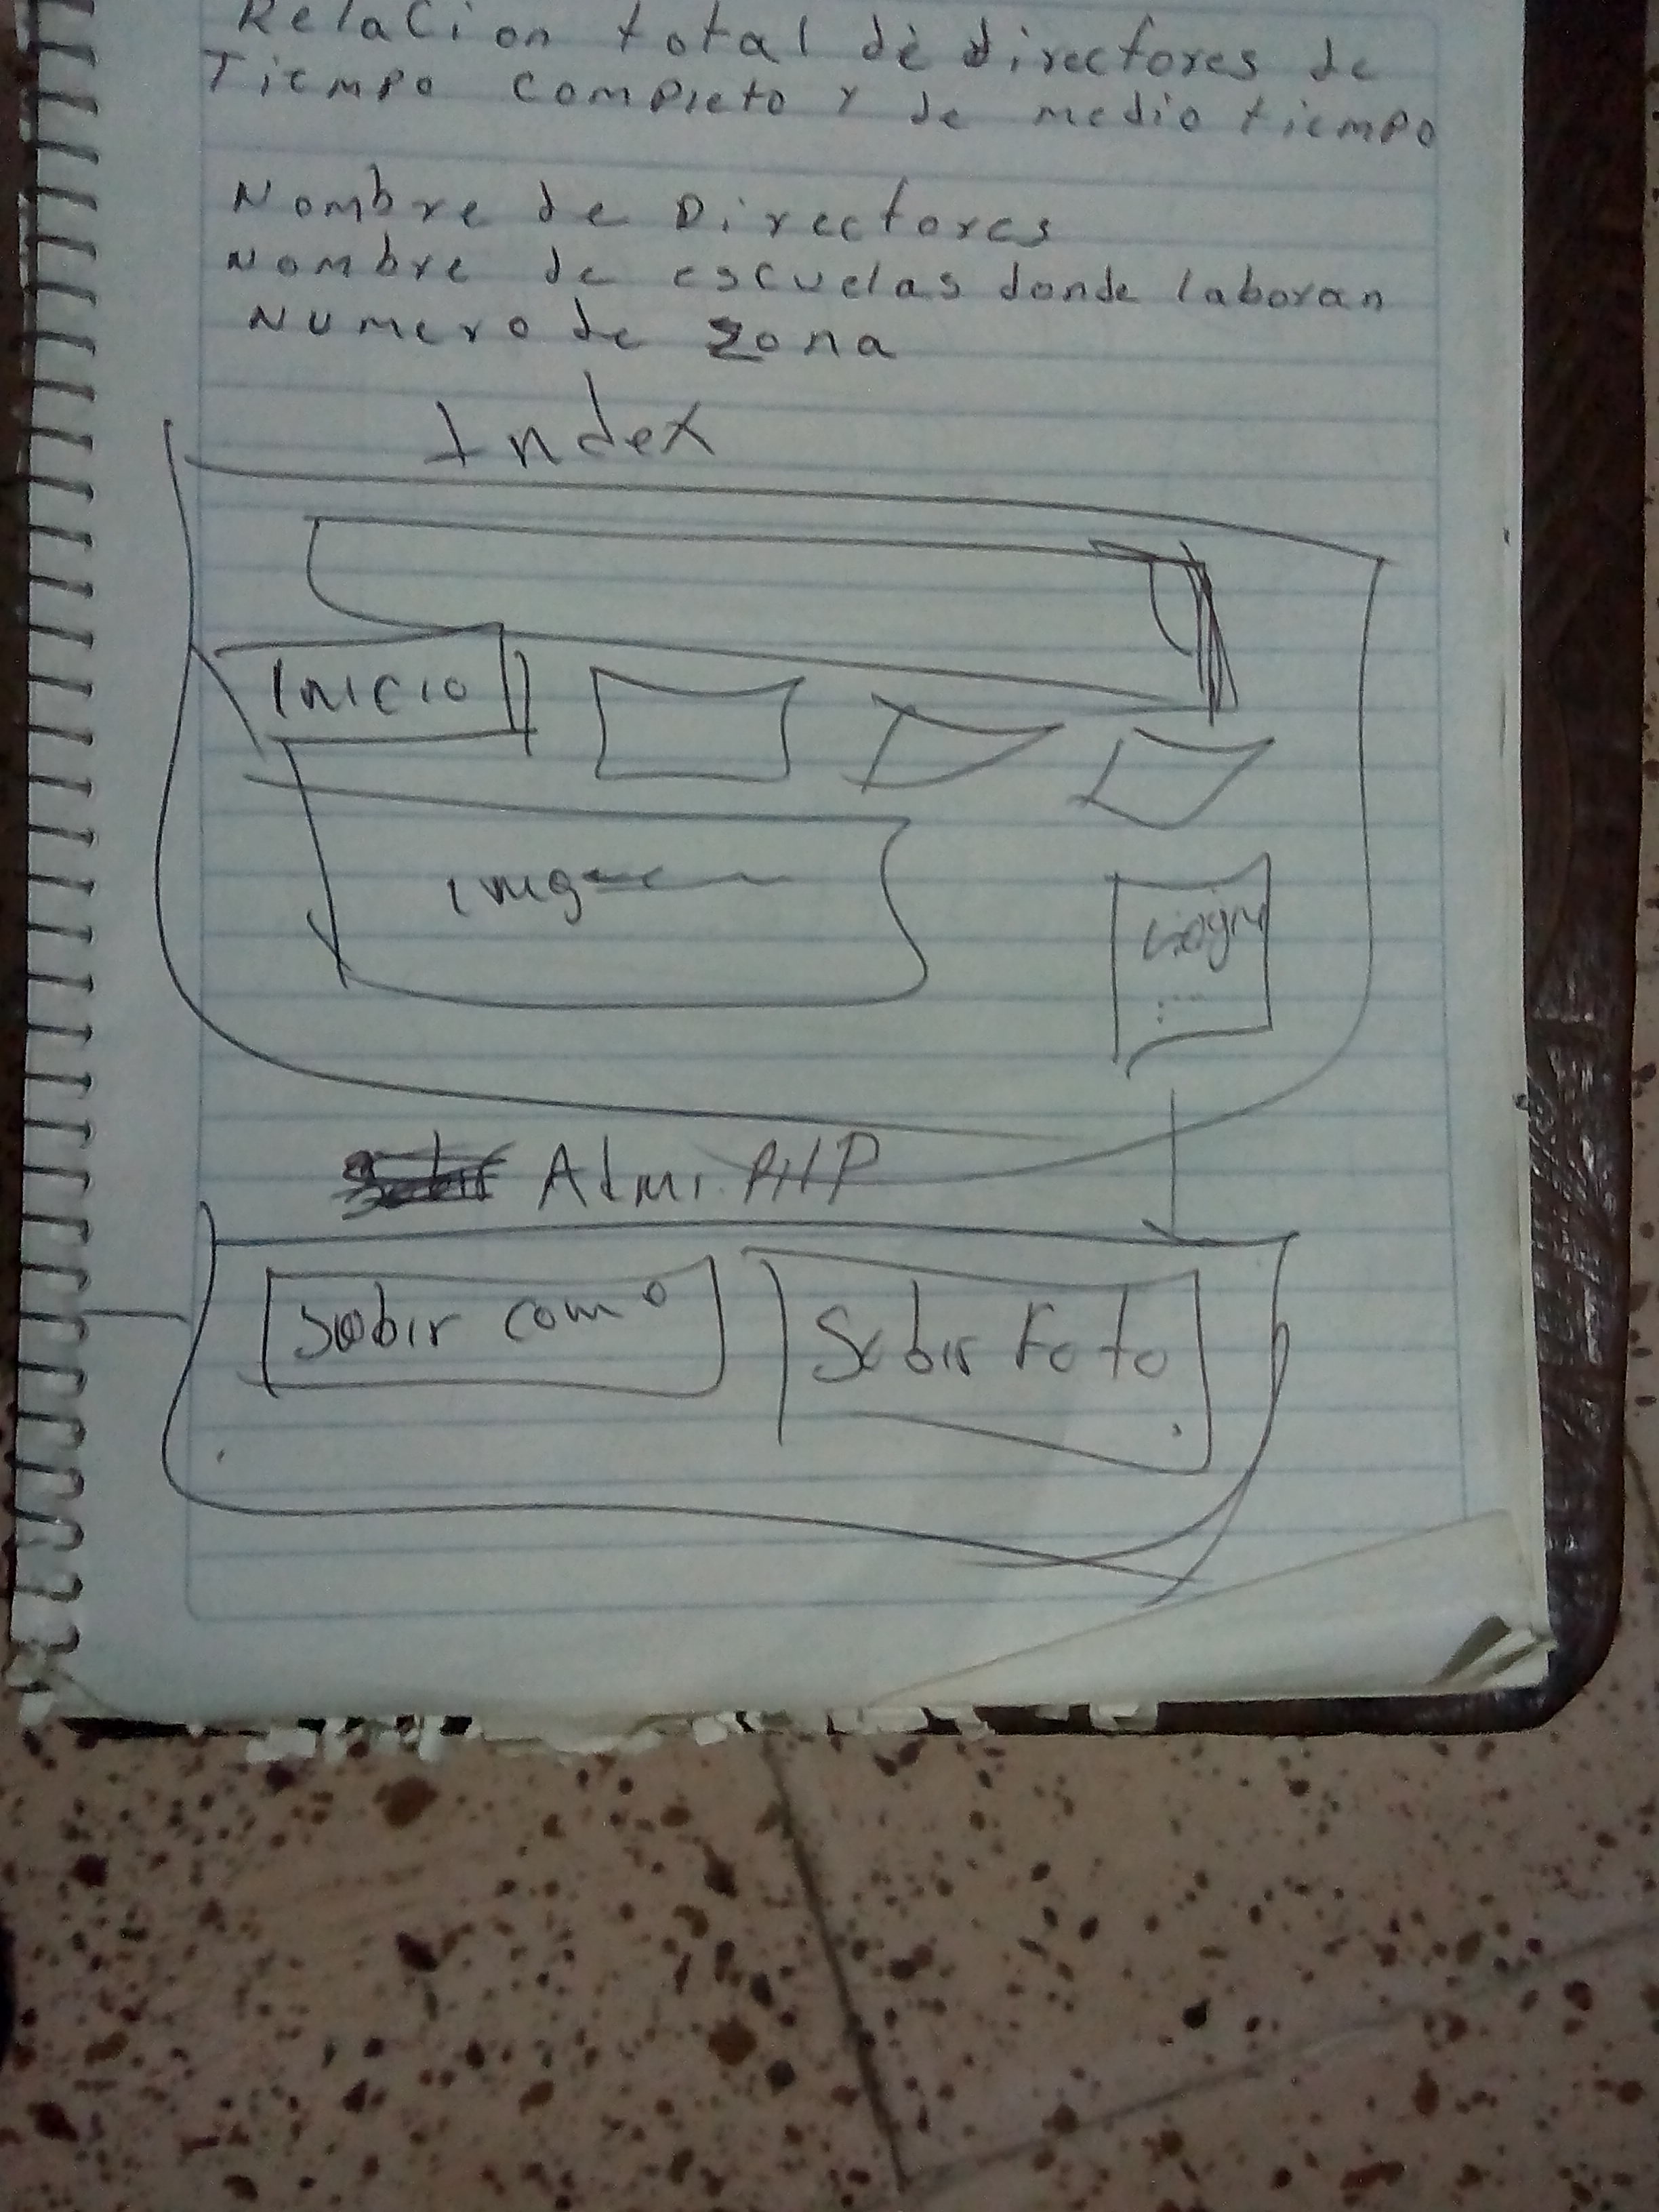 Relacion total de directores de
Tiempo completo y de medio tiempo
Nombre de Directores
Nombre de escuelas donde laboran
Numero de zona
Index
Inicio
Login
Admi. PHP
Subir com
Subir Foto